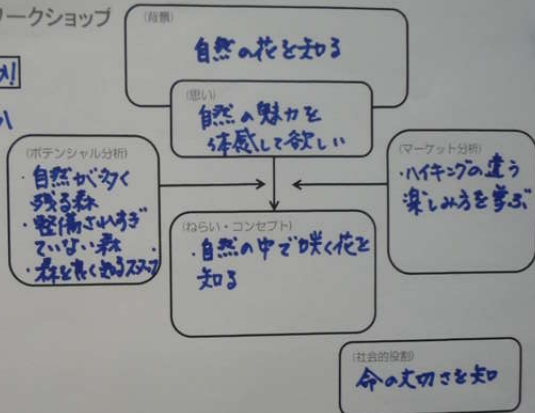 ワークショップ
(背景)
自然の花を知る
(思い)
自然の魅力を
体感して欲しい
(ポテンシャル分析)
・自然が多く
残る森
・整備されすぎ
ていない森
・森を良く知るスタッフ
(マーケット分析)
・ハイキングの違う
楽しみ方を学ぶ
(ねらい・コンセプト)
・自然の中で咲く花を
知る
(社会的役割)
命の大切さを知